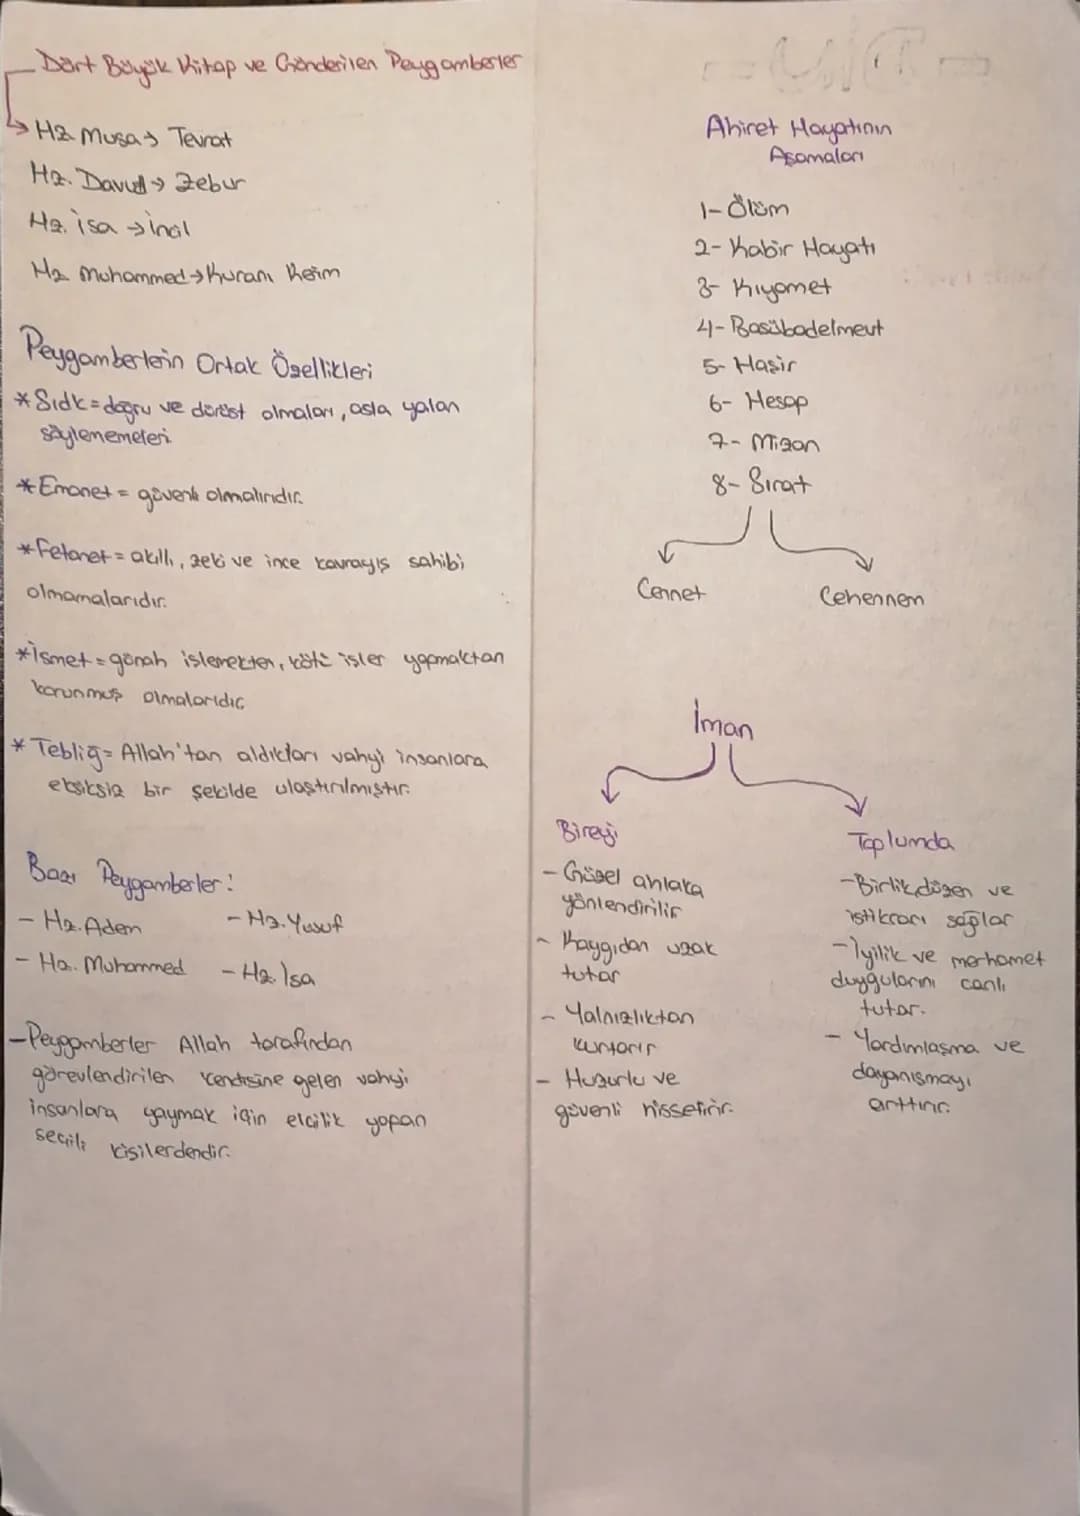 Dört Büyük Kitap ve Gönderilen Peygamberler
Hz Musa → Tevrat
Hz. Davud → Zebur
Hz. İsa → İncil
Hz Muhammed → Kuranı Kerim
Peygamberlerin Ortak Özellikleri
* Sıdk = doğru ve dürüst olmaları, asla yalan
söylememeleri
* Emanet = güvenli olmalırıdır.
* Fetanet = akıllı, zeki ve ince kavrayış sahibi
olmamalarıdır.
* İsmet = günah işlemekten, kötü işler yapmaktan
korunmuş olmalarıdır
* Tebliğ = Allah'tan aldıkları vahyi insanlara
eksiksiz bir şekilde ulaştırılmıştır.
Bazı Peygamberler:
- Hz. Adem - Hz. Yusuf
- Hz. Muhammed - Hz. İsa
- Peygamberler Allah tarafından
görevlendirilen kendisine gelen vahyi
insanlara yaymak için elçilik yapan
seçili kişilerdendir.
Ahiret Hayatının
Aşamaları
1- Ölüm
2- Kabir Hayatı
3- Kıyamet
4- Basübadelmevt
5- Haşir
6- Hesap
7- Mizan
8- Sırat
Cennet Cehennem
İman
Bireyi
- Güzel ahlaka
yönlendirilir
- Kaygıdan uzak
tutar
- Yalnızlıktan
kurtarır
- Huzurlu ve
güvenli hissetirir.
Toplumda
- Birlik, düzen ve
istikrarı sağlar
- İyilik ve merhamet
duygularını canlı
tutar.
- Yardımlaşma ve
dayanışmayı
arttırır.